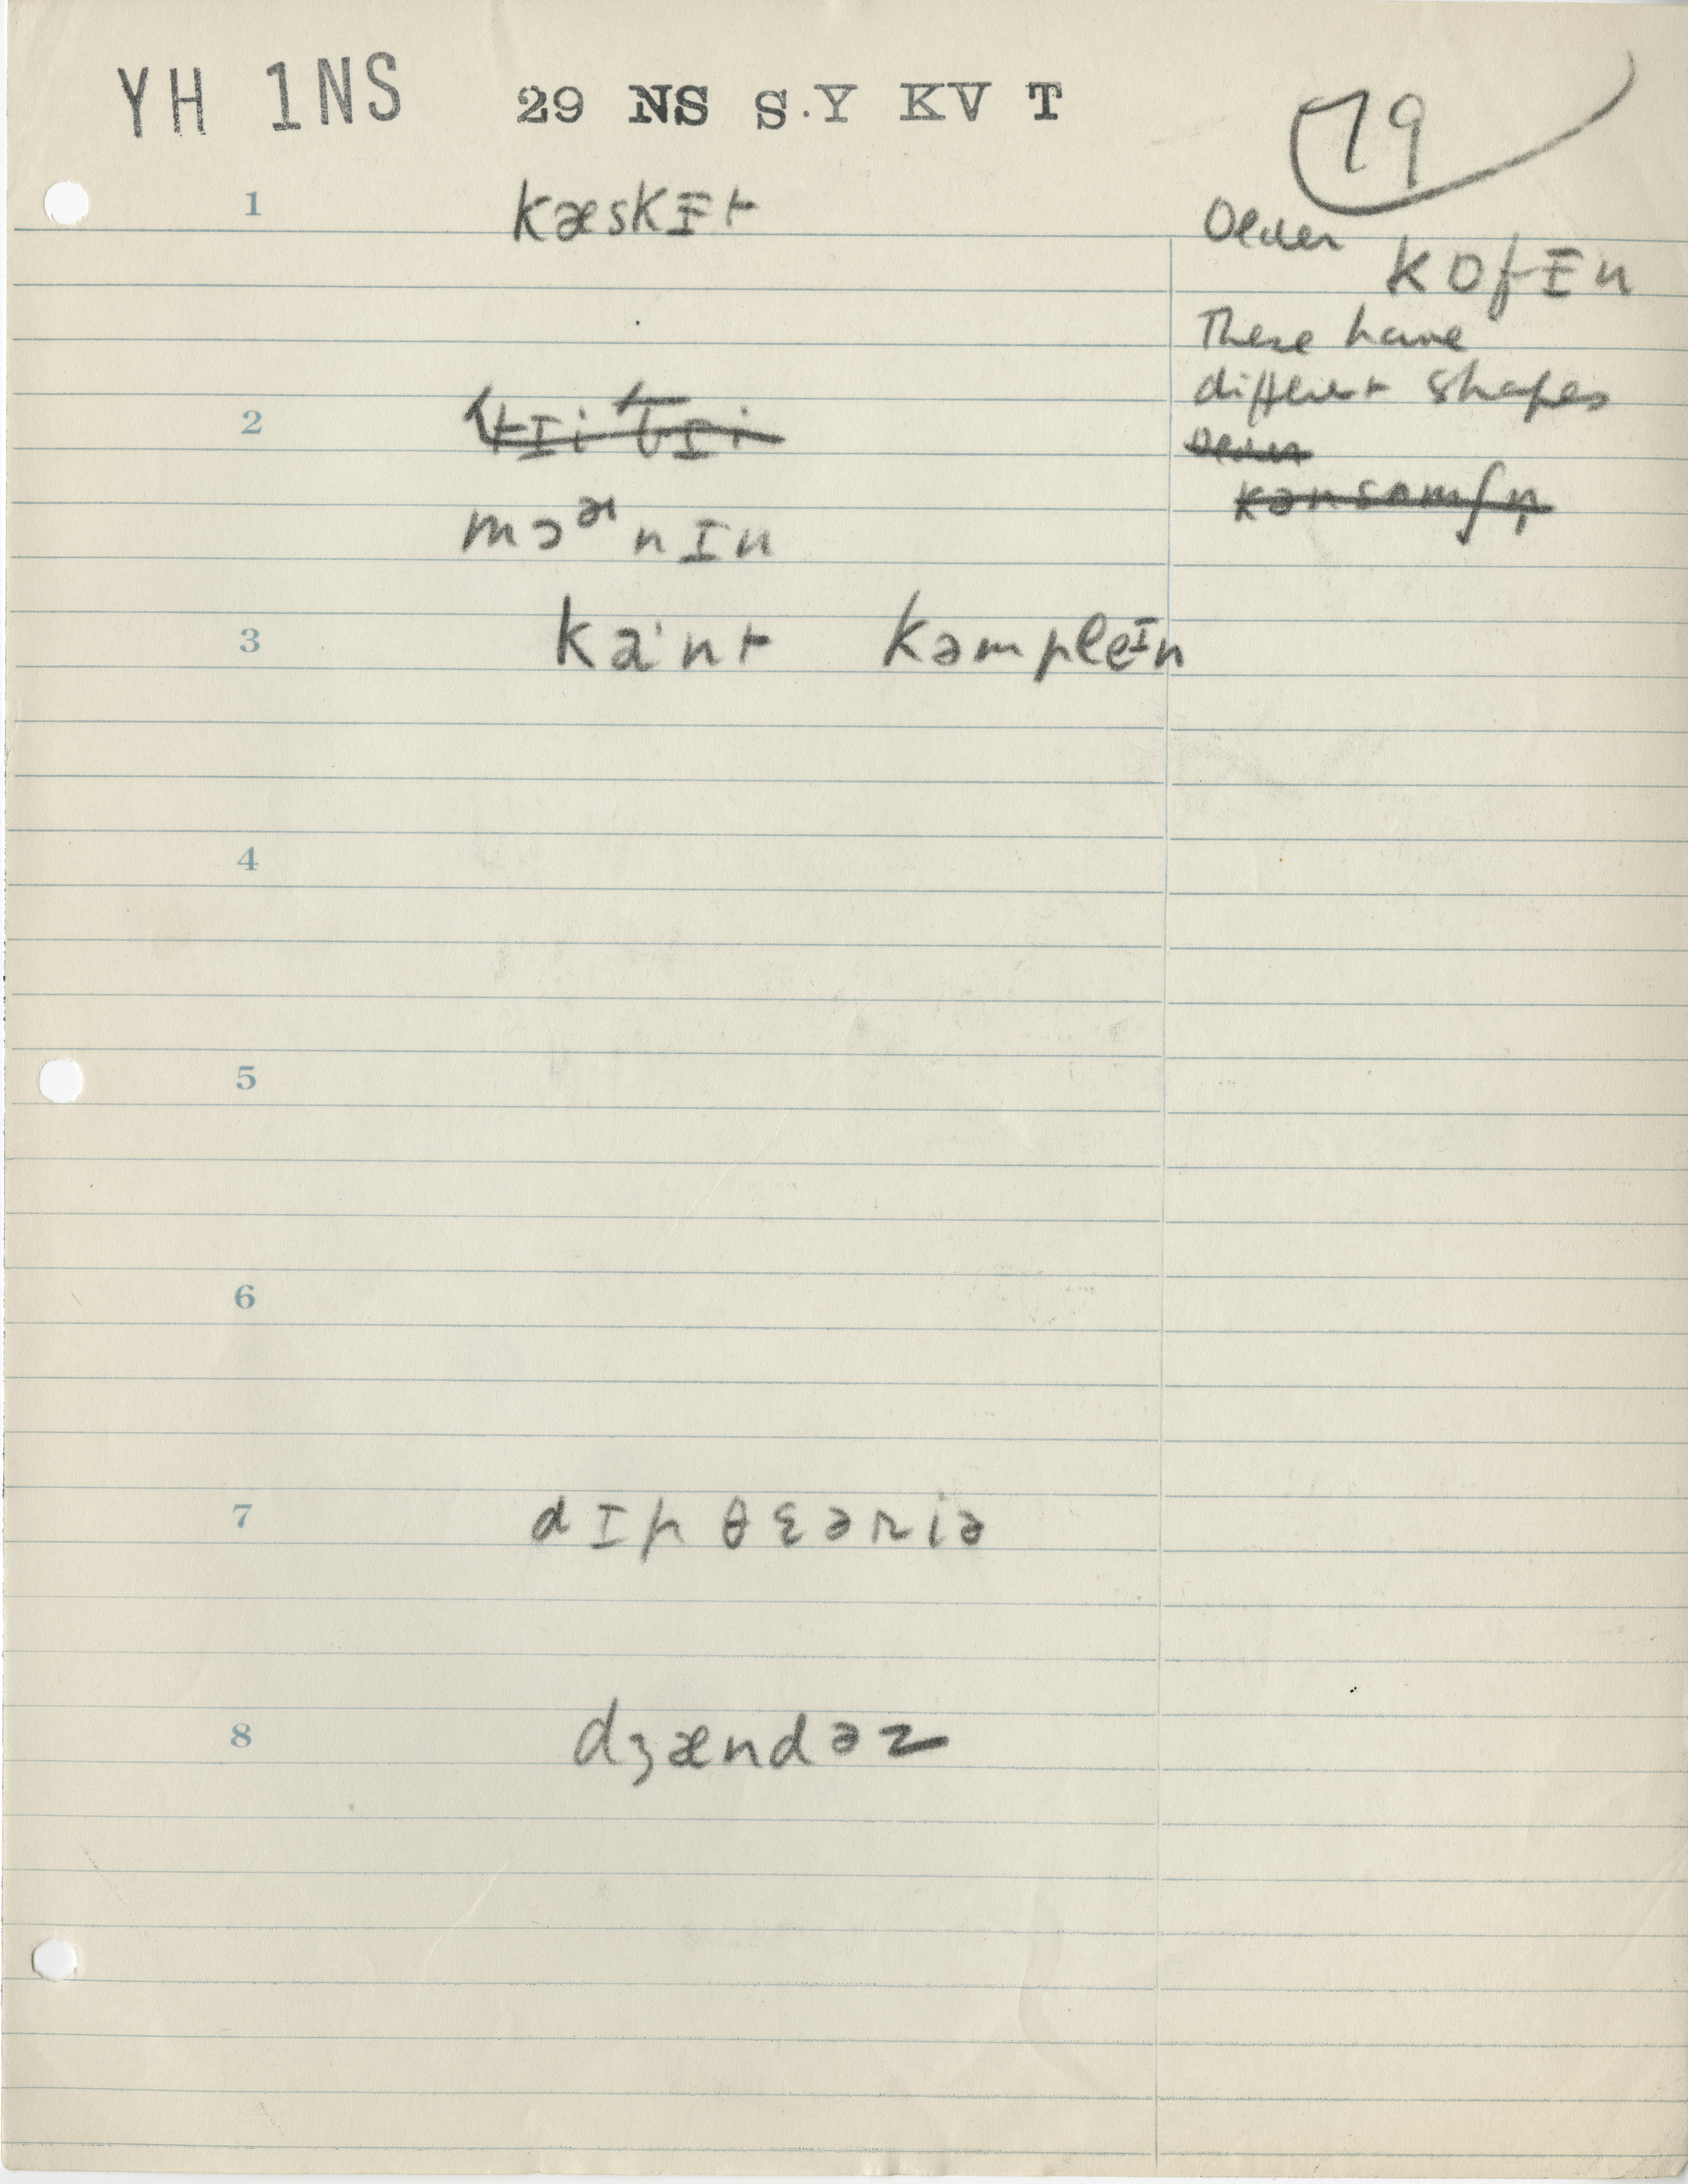 YH 1NS 29 NS S.Y KV T 79
1 kæskɪt
Older kɒfɪn
These have
different shapes
2
Older
kənsəmʃn̩
mɔᵊnɪn
3 ka·nt kəmpleɪn
4
5
6
7 dɪpθɛəriə
8 dʒændəz